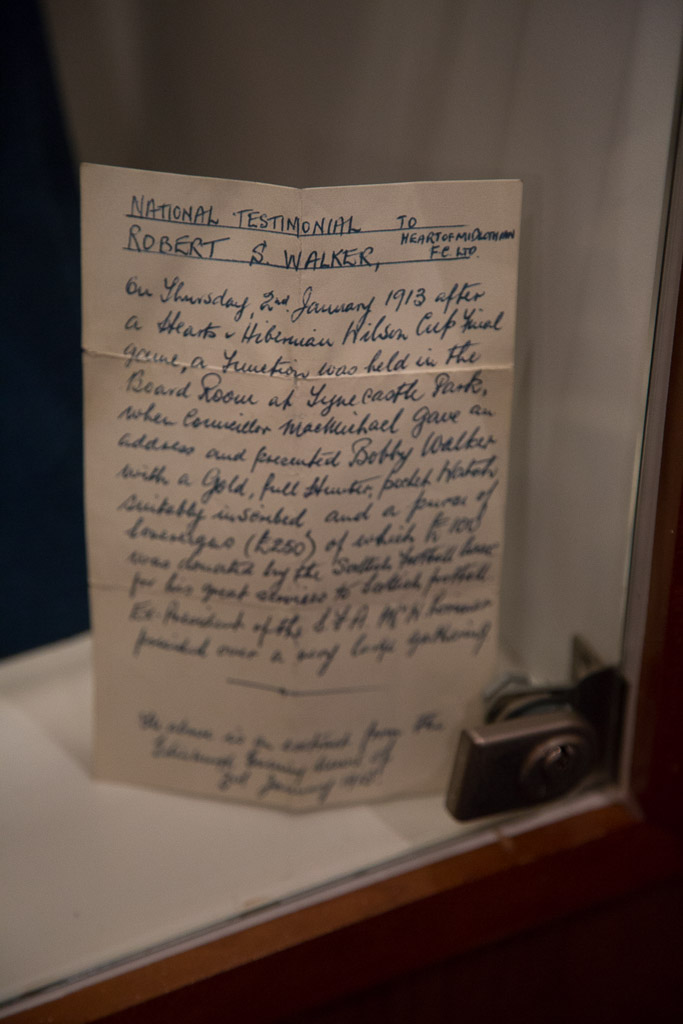 NATIONAL TESTIMONIAL TO
ROBERT S. WALKER, HEART OF MIDLOTHIAN
F.C. LTD.
On Thursday, 2nd January 1913 after
a Hearts v Hibernian Wilson Cup Final
game, a function was held in the
Board Room at Tynecastle Park,
when Councillor MacMichael gave an
address and presented Bobby Walker
with a Gold, full Hunter, pocket Watch
suitably inscribed and a purse of
Sovereigns (£250) of which £100
was donated by the Scottish Football Assoc
for his great services to Scottish football
Ex-President of the S F A Mr
presided over a very large gathering
The above is an extract from the
Edinburgh Evening News of
3rd January